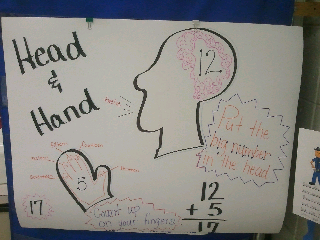 Head
&
Hand
12
Put the
big number
in the head
5
17
Count up
on your fingers!
12
+ 5
17